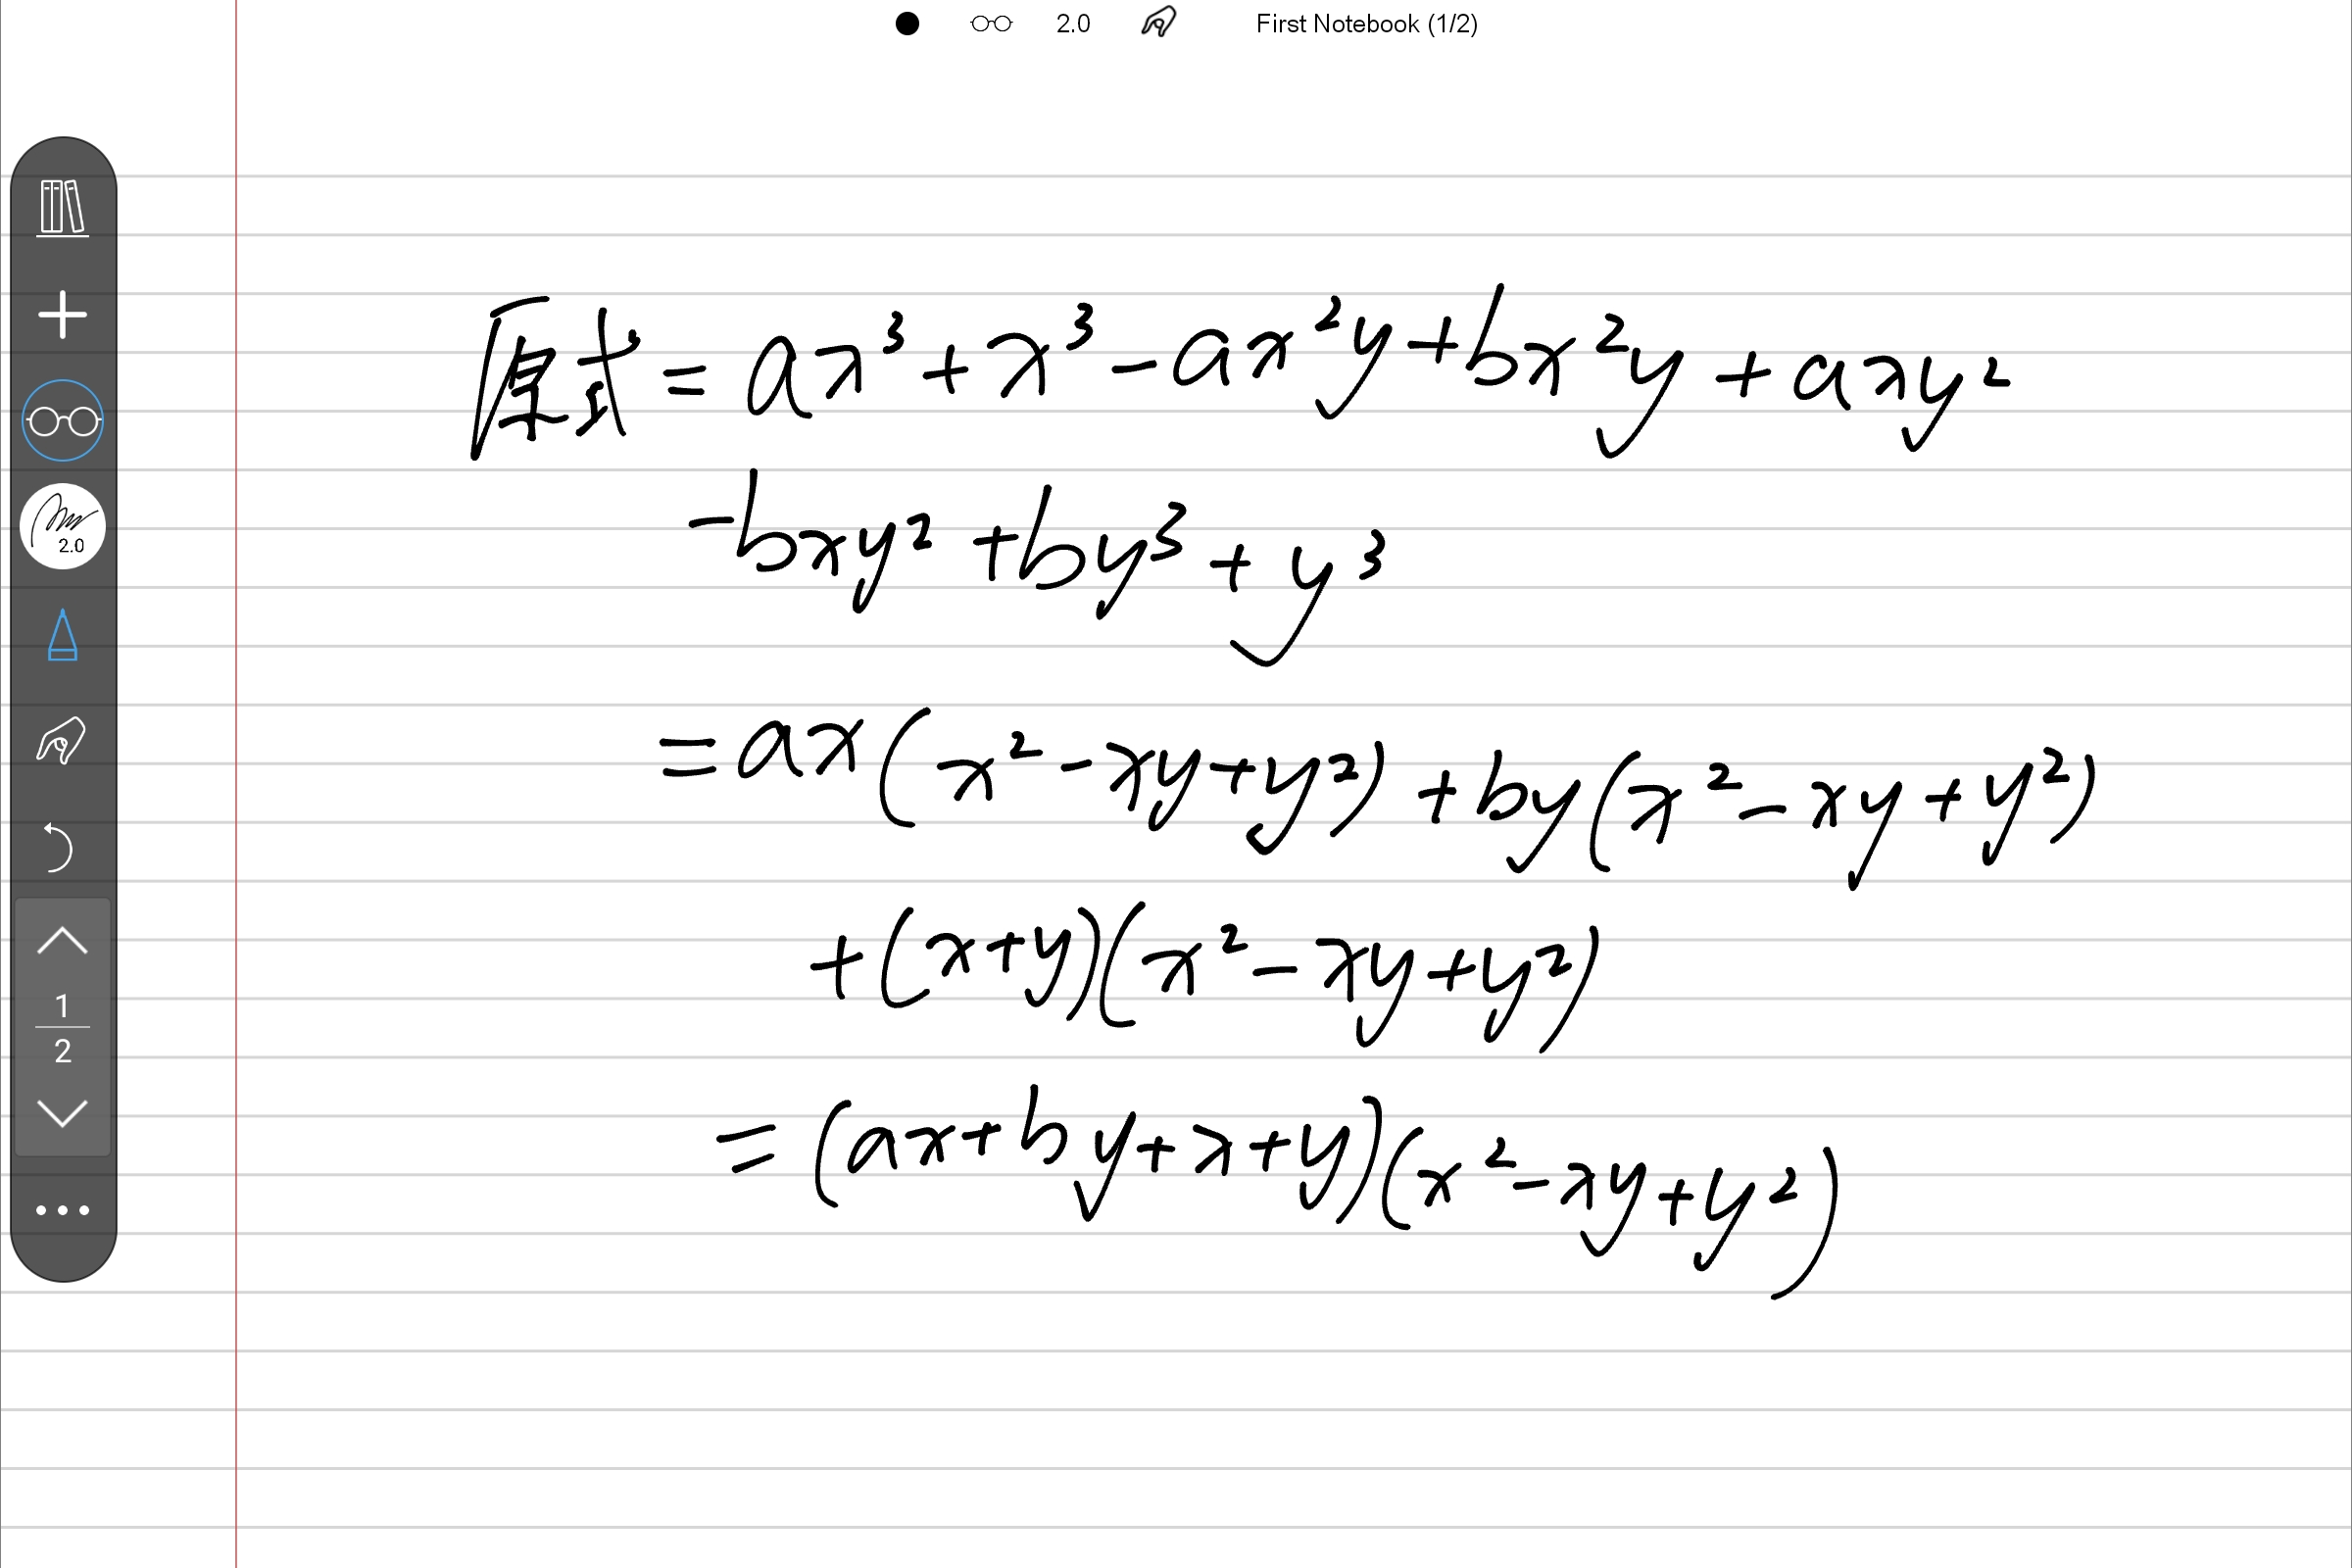 2.0 First Notebook (1/2)
2.0
1
2
原式 = ax³ + x³ - ax²y + bx²y + axy²
- bxy² + by³ + y³
= ax(x² - xy + y²) + by(x² - xy + y²)
+ (x+y)(x² - xy + y²)
= (ax + by + x + y)(x² - xy + y²)